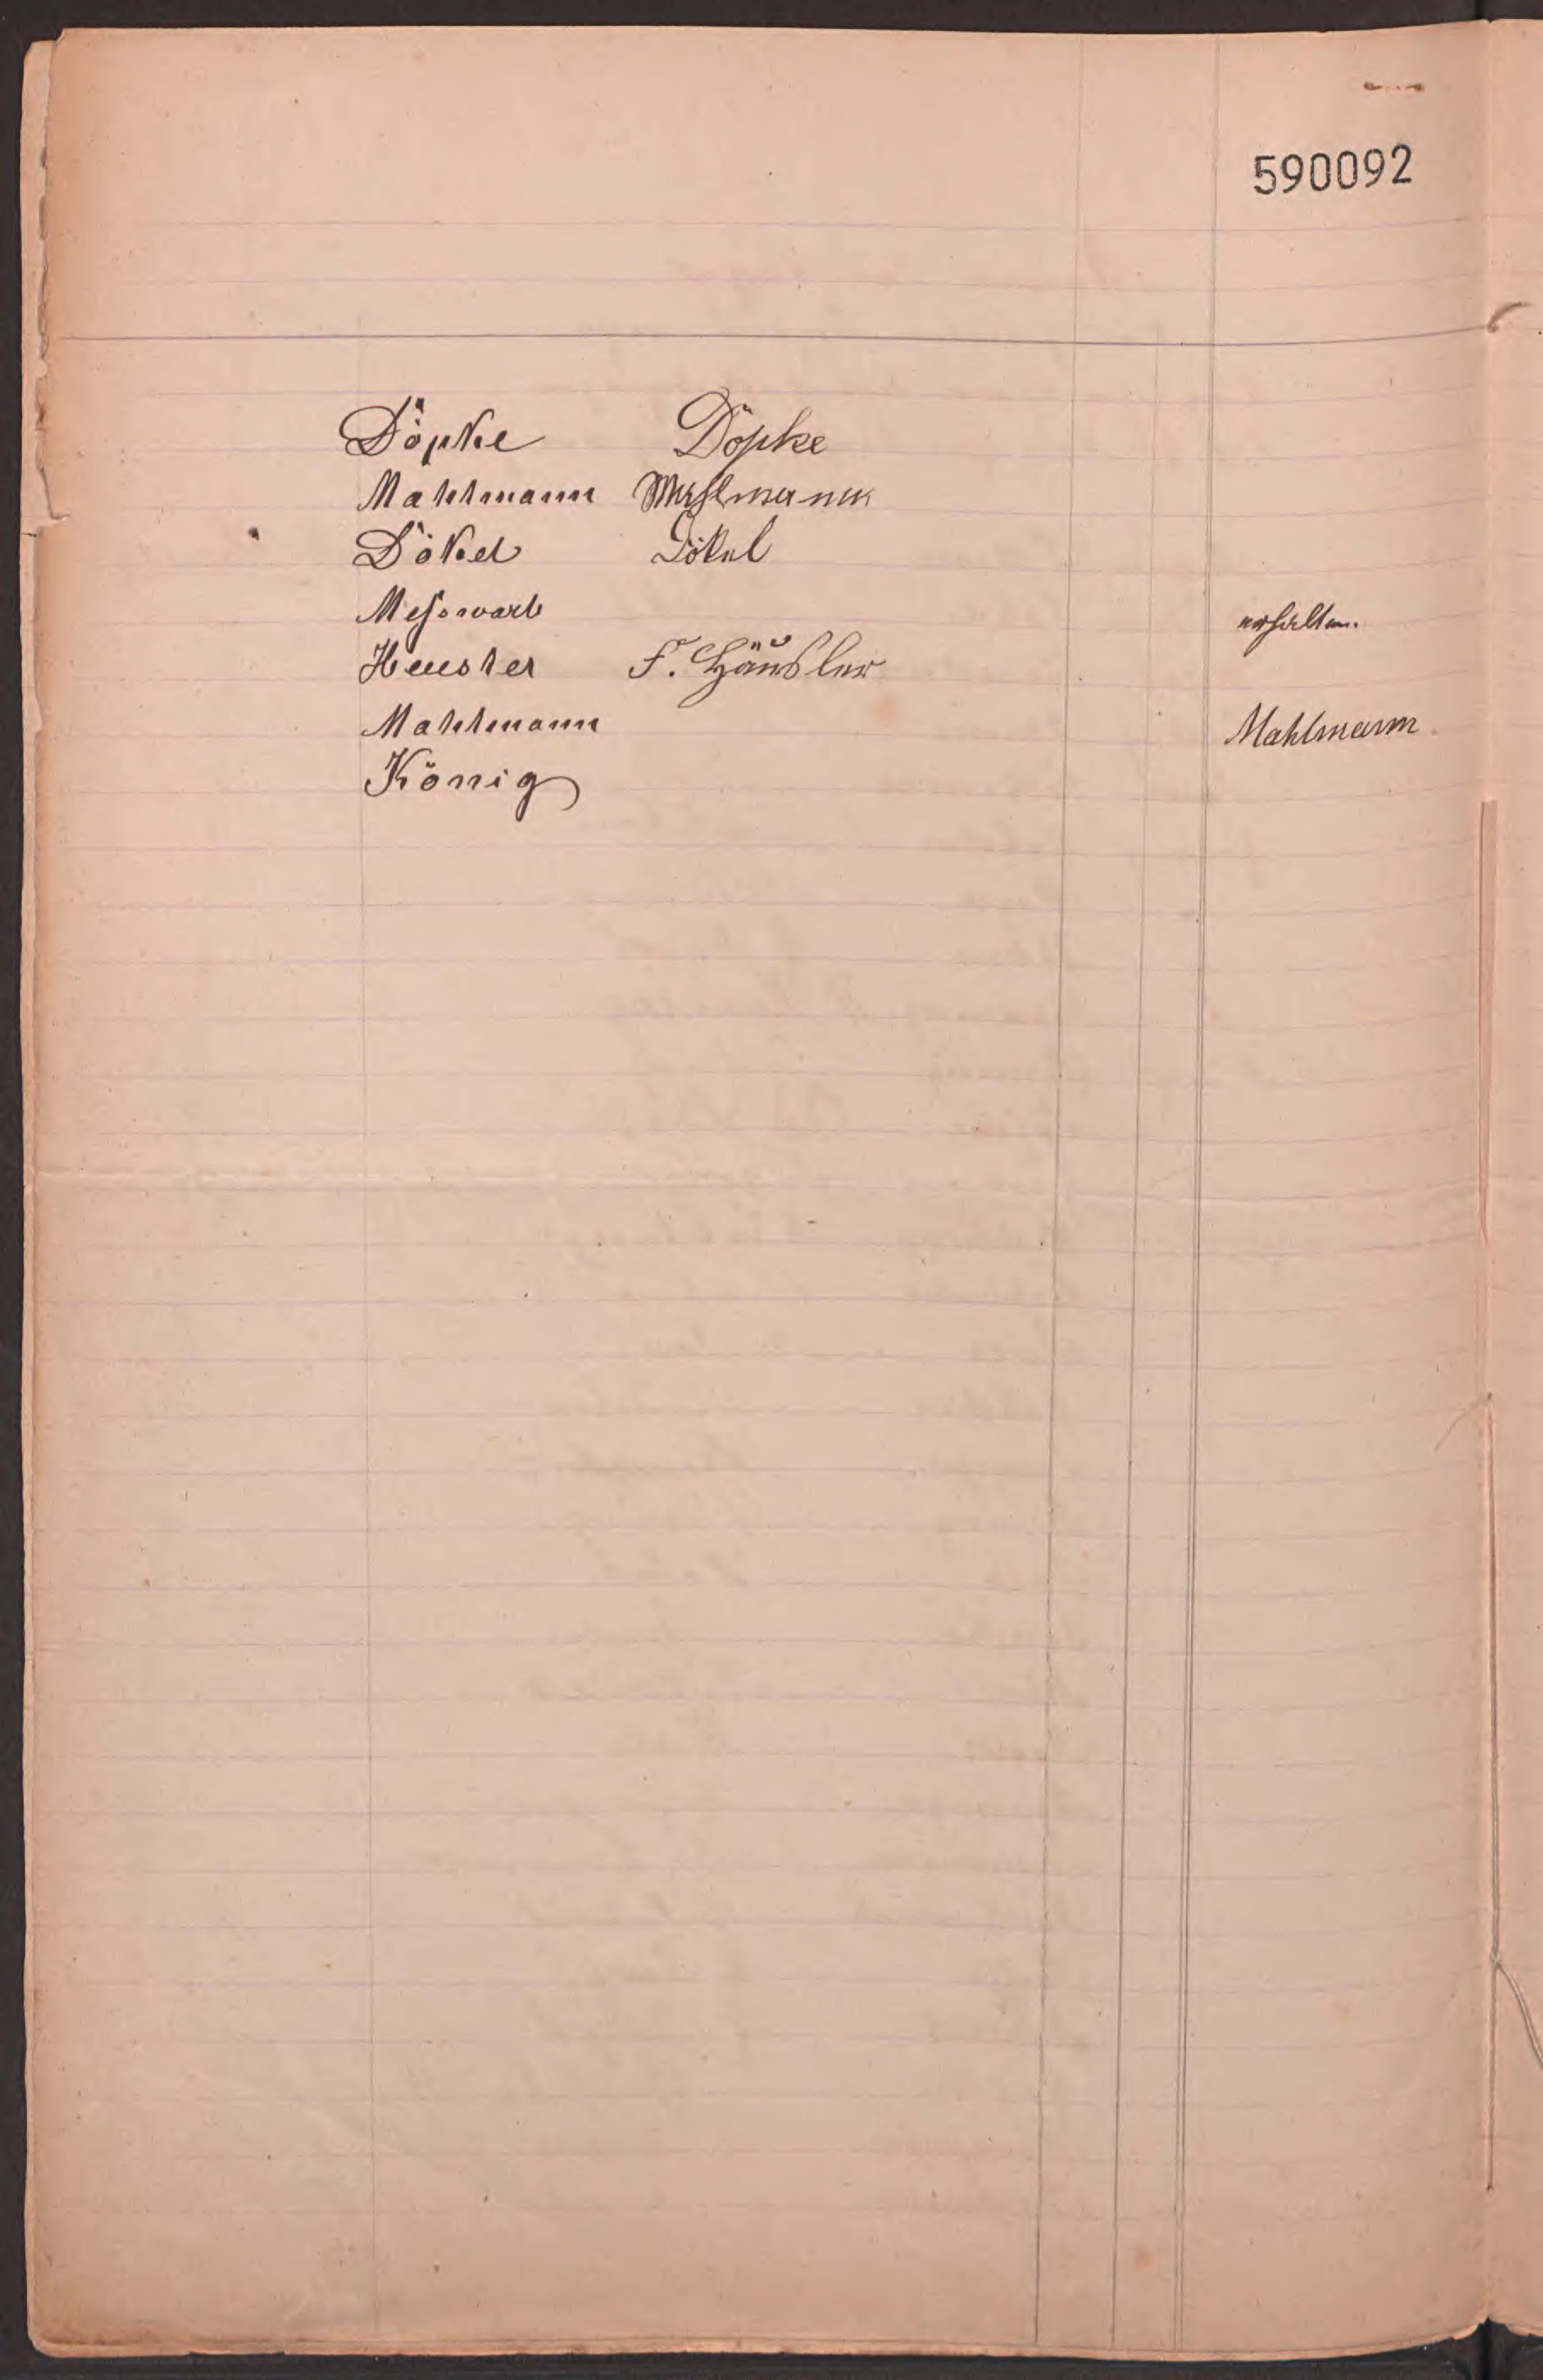 590092
Döpke Döpke
Mahlmann Mahlmann
Dökel Dökel
Meßwarb erhalten.
Heusler F. Häusler
Mahlmann Mahlmann
König